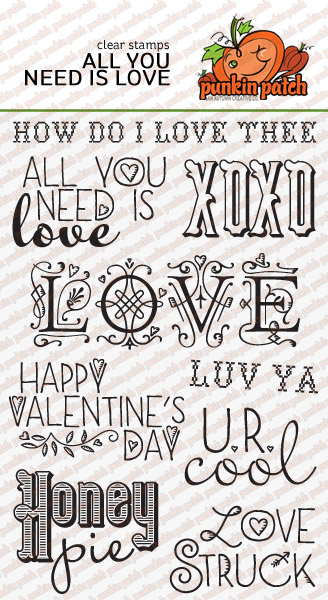 clear stamps
ALL YOU
NEED IS LOVE
punkin patch
AN AUTUMN CREATIVE CO.
HOW DO I LOVE THEE
ALL YOU
NEED IS
love
XOXO
LOVE
HAPPY
VALENTINE'S
DAY
LUV YA
U.R.
cool
Honey
pie
LOVE
STRUCK